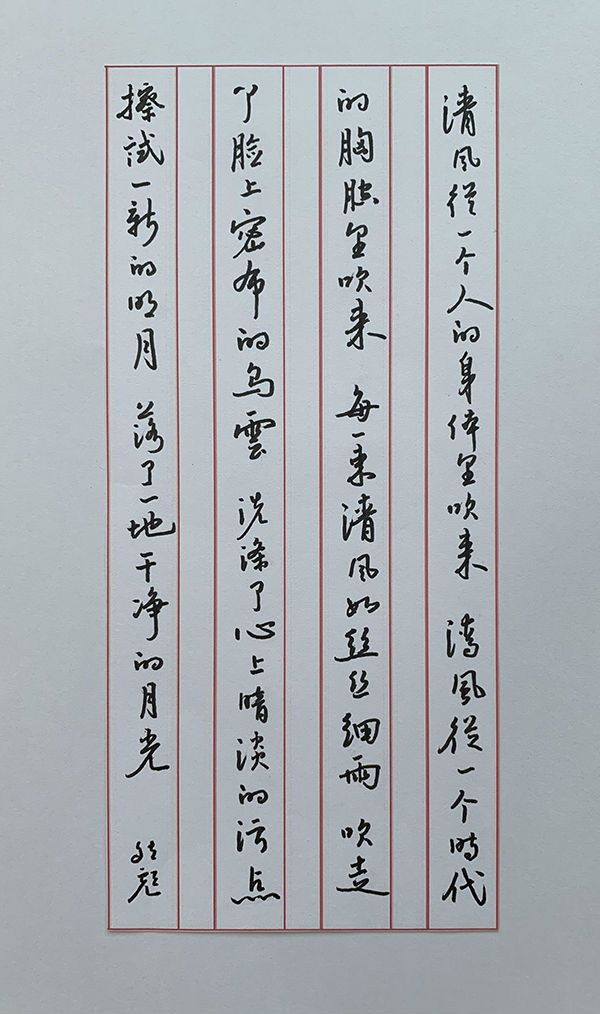 清風從一个人的身体里吹来 清風從一个時代
的胸腔里吹来 每一束清風如丝丝細雨 吹走
了脸上密布的乌雲 洗滌了心上暗淡的污点
擦試一新的明月 落了一地干净的月光